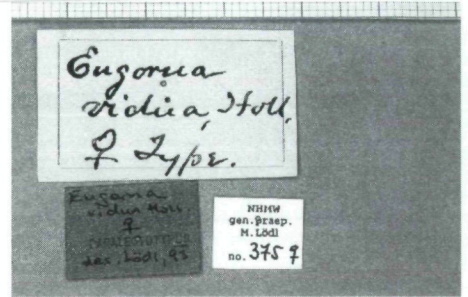 Eugorna
vidua, Holl.
♀ Type.
Eugorna
vidua Holl.
♀
det. Lödl, 95
NHMW
gen. praep.
M. Lödl
no. 375 ♀